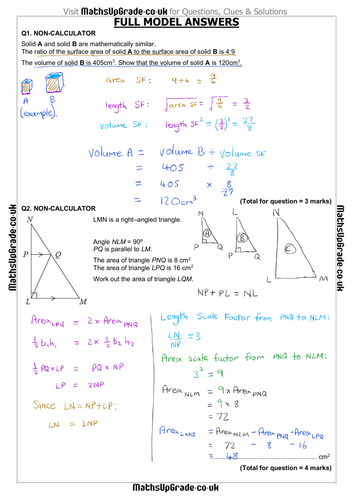 Visit MathsUpGrade.co.uk for Questions, Clues & Solutions
FULL MODEL ANSWERS
Q1. NON-CALCULATOR
Solid A and solid B are mathematically similar.
The ratio of the surface area of solid A to the surface area of solid B is 4:9
The volume of solid B is 405cm³. Show that the volume of solid A is 120cm³.
A B
(example).
area SF: 9 ÷ 4 = 9/4
length SF: √area SF = √9/4 = 3/2
volume SF: length SF³ = (3/2)³ = 27/8
Volume A = Volume B ÷ Volume SF
= 405 ÷ 27/8
= 405 × 8/27
= 120cm³
(Total for question = 3 marks)
Q2. NON-CALCULATOR
LMN is a right-angled triangle.
Angle NLM = 90º
PQ is parallel to LM.
The area of triangle PNQ is 8 cm²
The area of triangle LPQ is 16 cm²
Work out the area of triangle LQM.
N
P Q
L M
N
A
P Q
L
B
P Q
N
C
L M
NP + PL = NL
Area LPQ = 2 × Area PNQ
½ b₁h₁ = 2 × ½ b₂ h₂
½ PQ × LP = PQ × NP
LP = 2NP
Since LN = NP + LP;
LN = 3NP
Length Scale Factor from PNQ to NLM:
LN/NP = 3
Area scale factor from PNQ to NLM:
3² = 9
Area NLM = 9 × Area PNQ
= 9 × 8
= 72
Area LMQ = Area NLM − Area PNQ − Area LPQ
= 72 − 8 − 16
= 48 cm²
(Total for question = 4 marks)
MathsUpGrade.co.uk
MathsUpGrade.co.uk
MathsUpGrade.co.uk